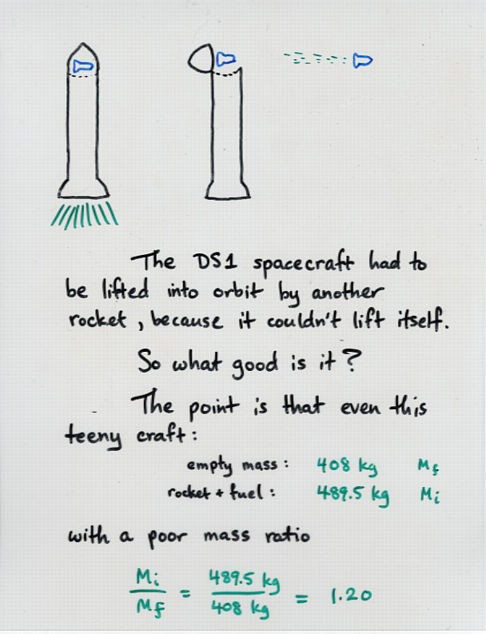 The DS1 spacecraft had to
be lifted into orbit by another
rocket, because it couldn't lift itself.
So what good is it?
The point is that even this
teeny craft:
empty mass: 408 kg Mf
rocket + fuel: 489.5 kg Mi
with a poor mass ratio
Mi/Mf = 489.5 kg/408 kg = 1.20